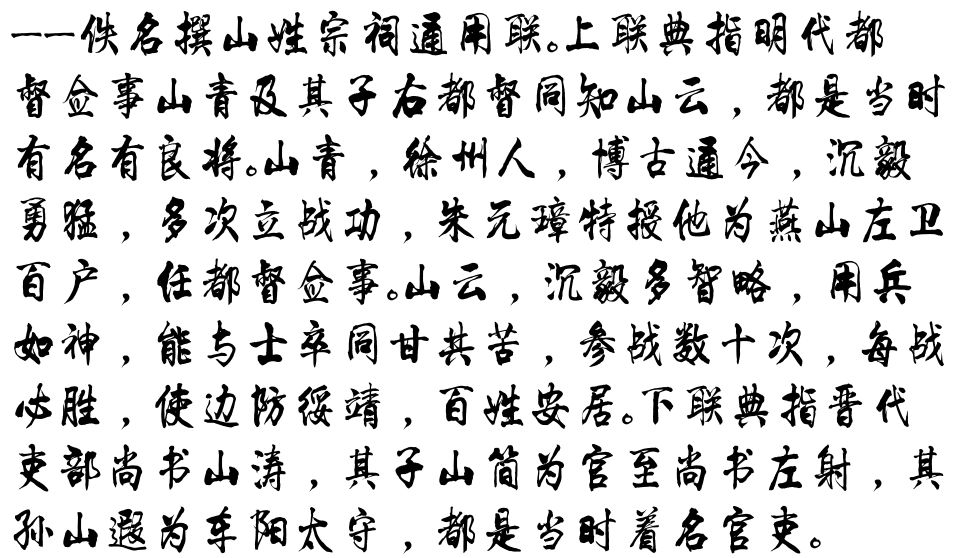 ——佚名撰山姓宗祠通用联。上联典指明代都
督佥事山青及其子右都督同知山云，都是当时
有名有良将。山青，徐州人，博古通今，沉毅
勇猛，多次立战功，朱元璋特授他为燕山左卫
百户，任都督佥事。山云，沉毅多智略，用兵
如神，能与士卒同甘共苦，参战数十次，每战
必胜，使边防绥靖，百姓安居。下联典指晋代
吏部尚书山涛，其子山简为官至尚书左射，其
孙山遐为车阳太守，都是当时着名官吏。